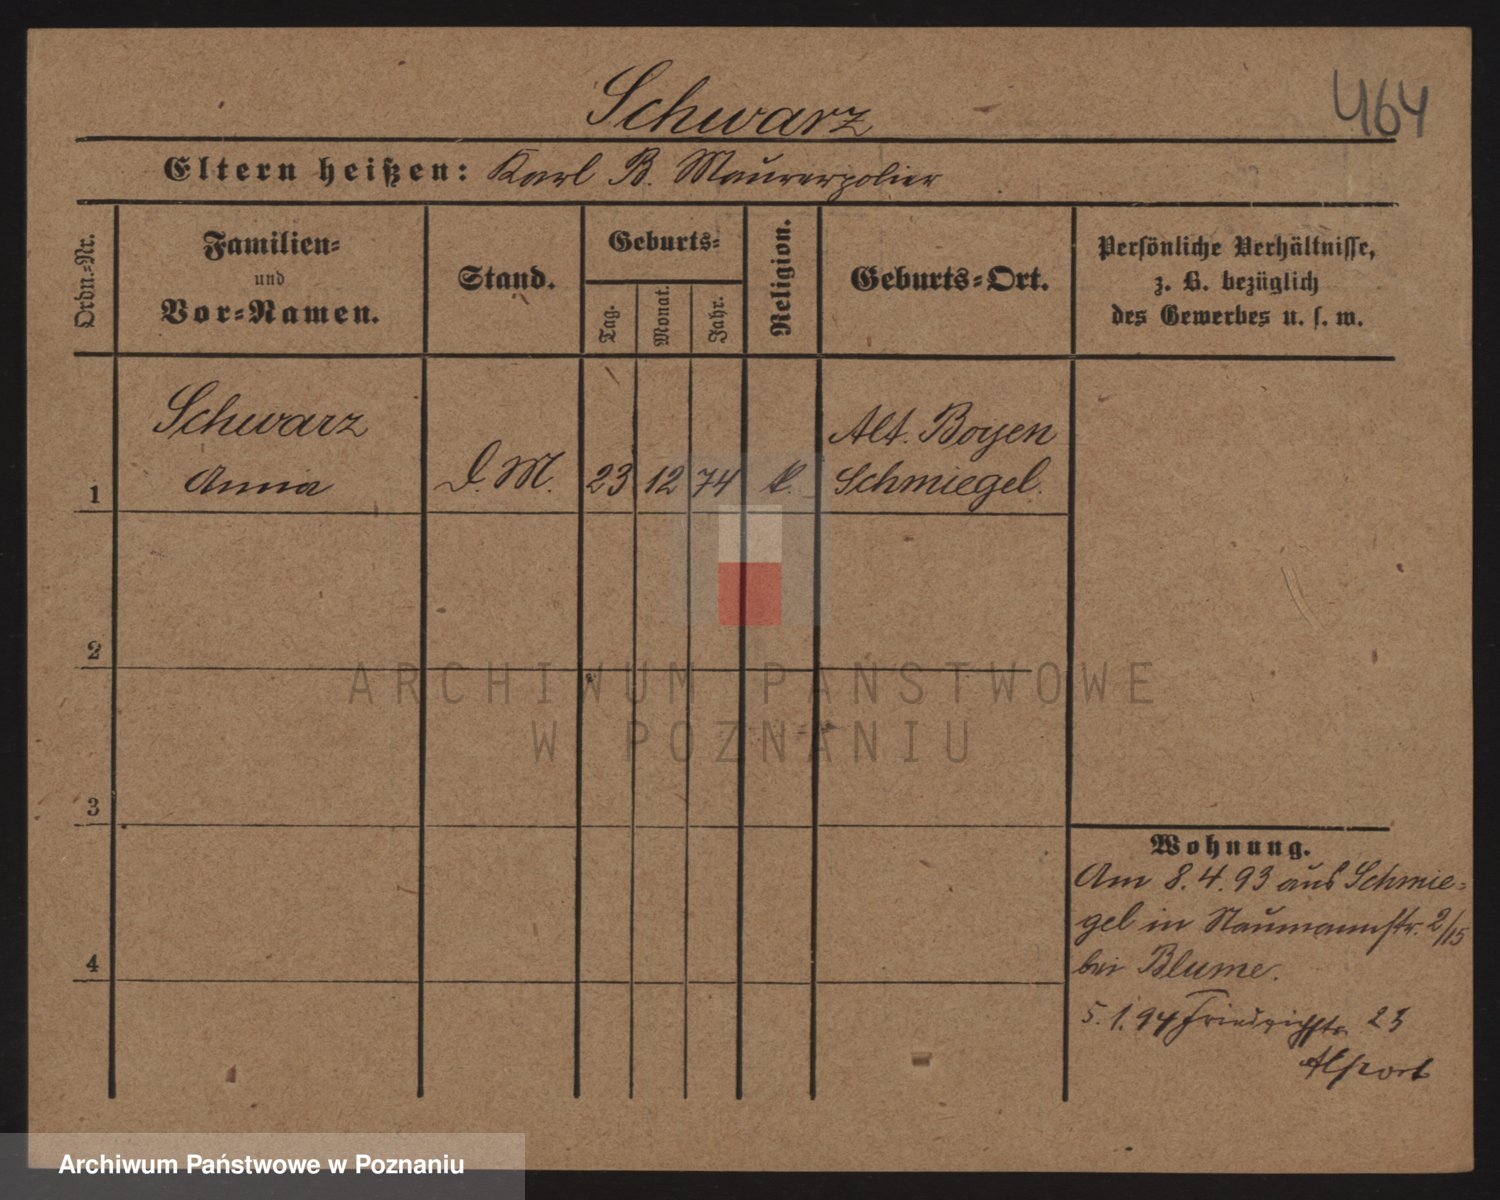 Schwarz
464
Eltern heißen: Karl B. Maurerpolier
Ordn.-Nr.
Familien-
und
Vor-Namen.
Stand.
Geburts-
Tag.
Monat.
Jahr.
Religion.
Geburts-Ort.
Persönliche Verhältnisse,
z. B. bezüglich
des Gewerbes u. s. w.
Schwarz
Alt. Boyen
1 Anna D. M. 23 12 74 k. Schmiegel.
2
3
4
Wohnung.
Am 8.4.93 aus Schmie-
gel in Naumannstr. 2/15
bei Blume.
5.1.94 Friedrichstr. 23
ARCHIWUM PAŃSTWOWE
W POZNANIU
Archiwum Państwowe w Poznaniu